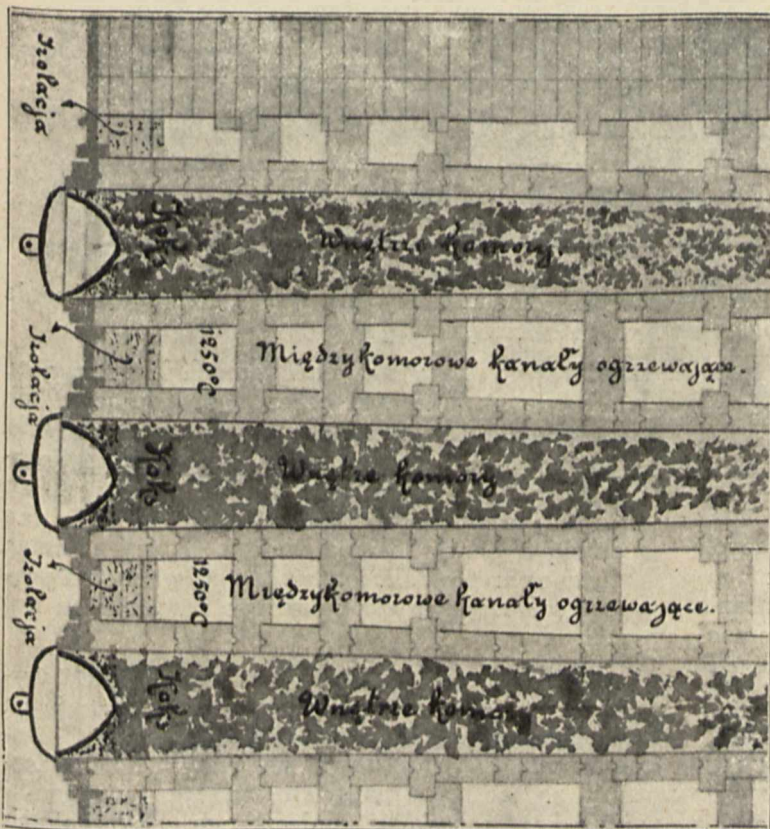 Izolacja
Koks
Wnętrze komory.
Izolacja
1250°C
Międzykomorowe kanały ogrzewające.
Koks
Wnętrze komory
Izolacja
1250°C
Międzykomorowe kanały ogrzewające.
Koks
Wnętrze komory